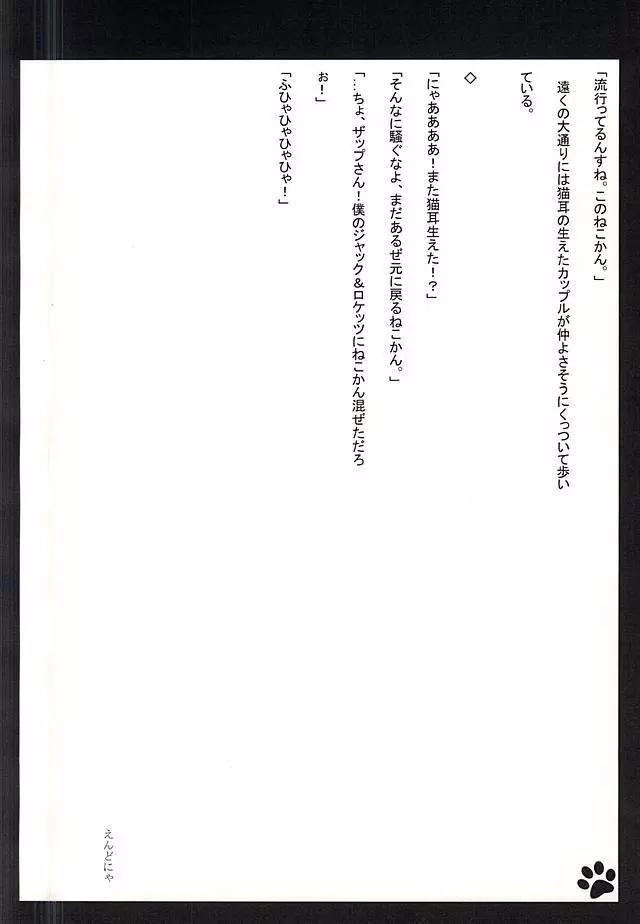 「流行ってるんすね。このねこかん。」
遠くの大通りには猫耳の生えたカップルが仲よさそうにくっついて歩い
ている。
◇
「にゃああああ！また猫耳生えた！？」
「そんなに騒ぐなよ、まだあるぜ元に戻るねこかん。」
「…ちょ、ザップさん！僕のジャック＆ロケッツにねこかん混ぜただろ
ぉ！」
「ふひゃひゃひゃひゃ！」
えんどにゃ